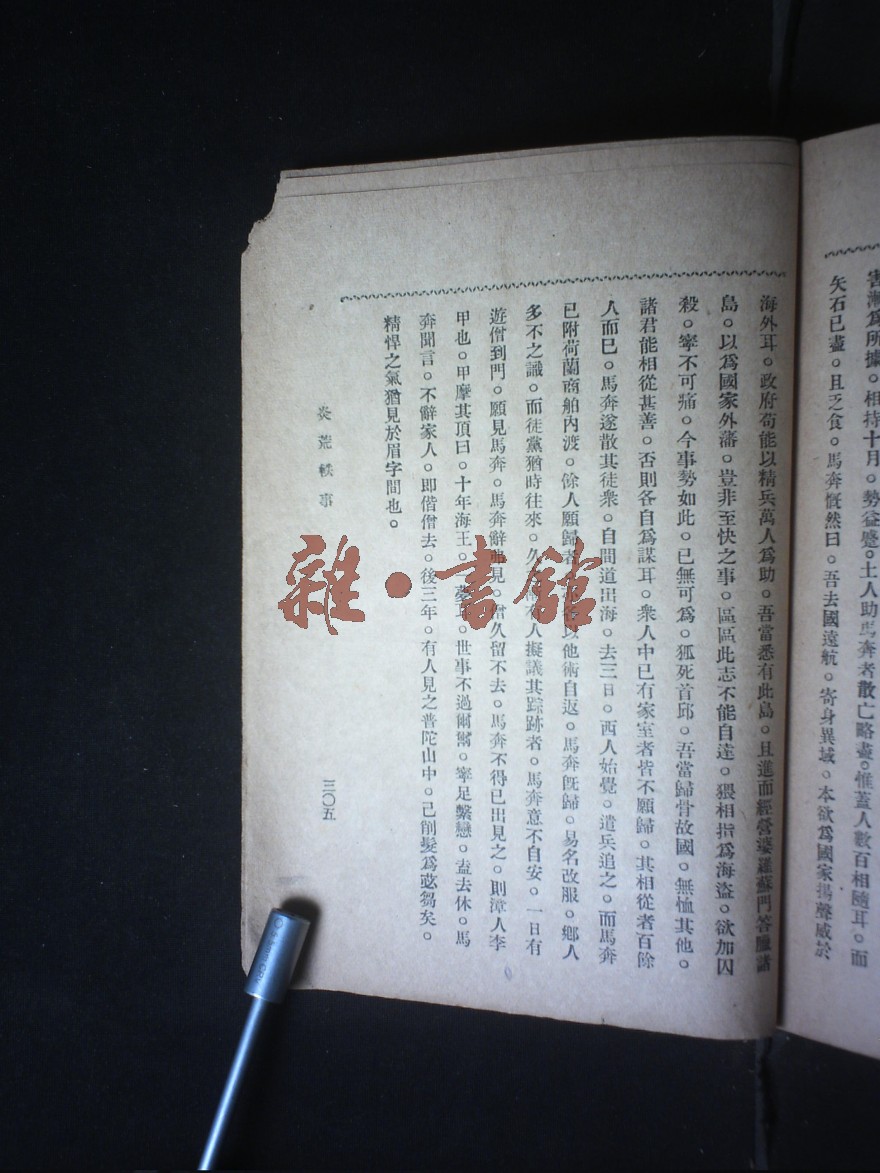 害漸爲所據。相持十月。勢益蹙。土人助馬奔者散亡略盡。惟蓋人數百相隨耳。而
矢石已盡。且乏食。馬奔慨然曰。吾去國遠航。寄身異域。本欲爲國家揚聲威於
海外耳。政府苟能以精兵萬人爲助。吾當悉有此島。且進而經營婆羅蘇門答臘諸
島。以爲國家外藩。豈非至快之事。區區此志不能自達。猥相指爲海盜。欲加囚
殺。寧不可痛。今事勢如此。已無可爲。狐死首邱。吾當歸骨故國。無恤其他。
諸君能相從甚善。否則各自爲謀耳。衆人中已有家室者皆不願歸。其相從者百餘
人而已。馬奔遂散其徒衆。自間道出海。去三日。西人始覺。遣兵追之。而馬奔
已附荷蘭商舶內渡。餘人願歸者以他術自返。馬奔旣歸。易名改服。鄉人
多不之識。而徒黨猶時往來。久人擬議其踪跡者。馬奔意不自安。一日有
遊僧到門。願見馬奔。馬奔辭弗見。僧久留不去。馬奔不得已出見之。則漳人李
甲也。甲摩其頂曰。十年海王。一夢耳。世事不過爾爾。寧足繫戀。盍去休。馬
奔聞言。不辭家人。即偕僧去。後三年。有人見之普陀山中。已削髮爲苾芻矣。
精悍之氣猶見於眉字間也。
炎荒軼事
三〇五
雜・書館